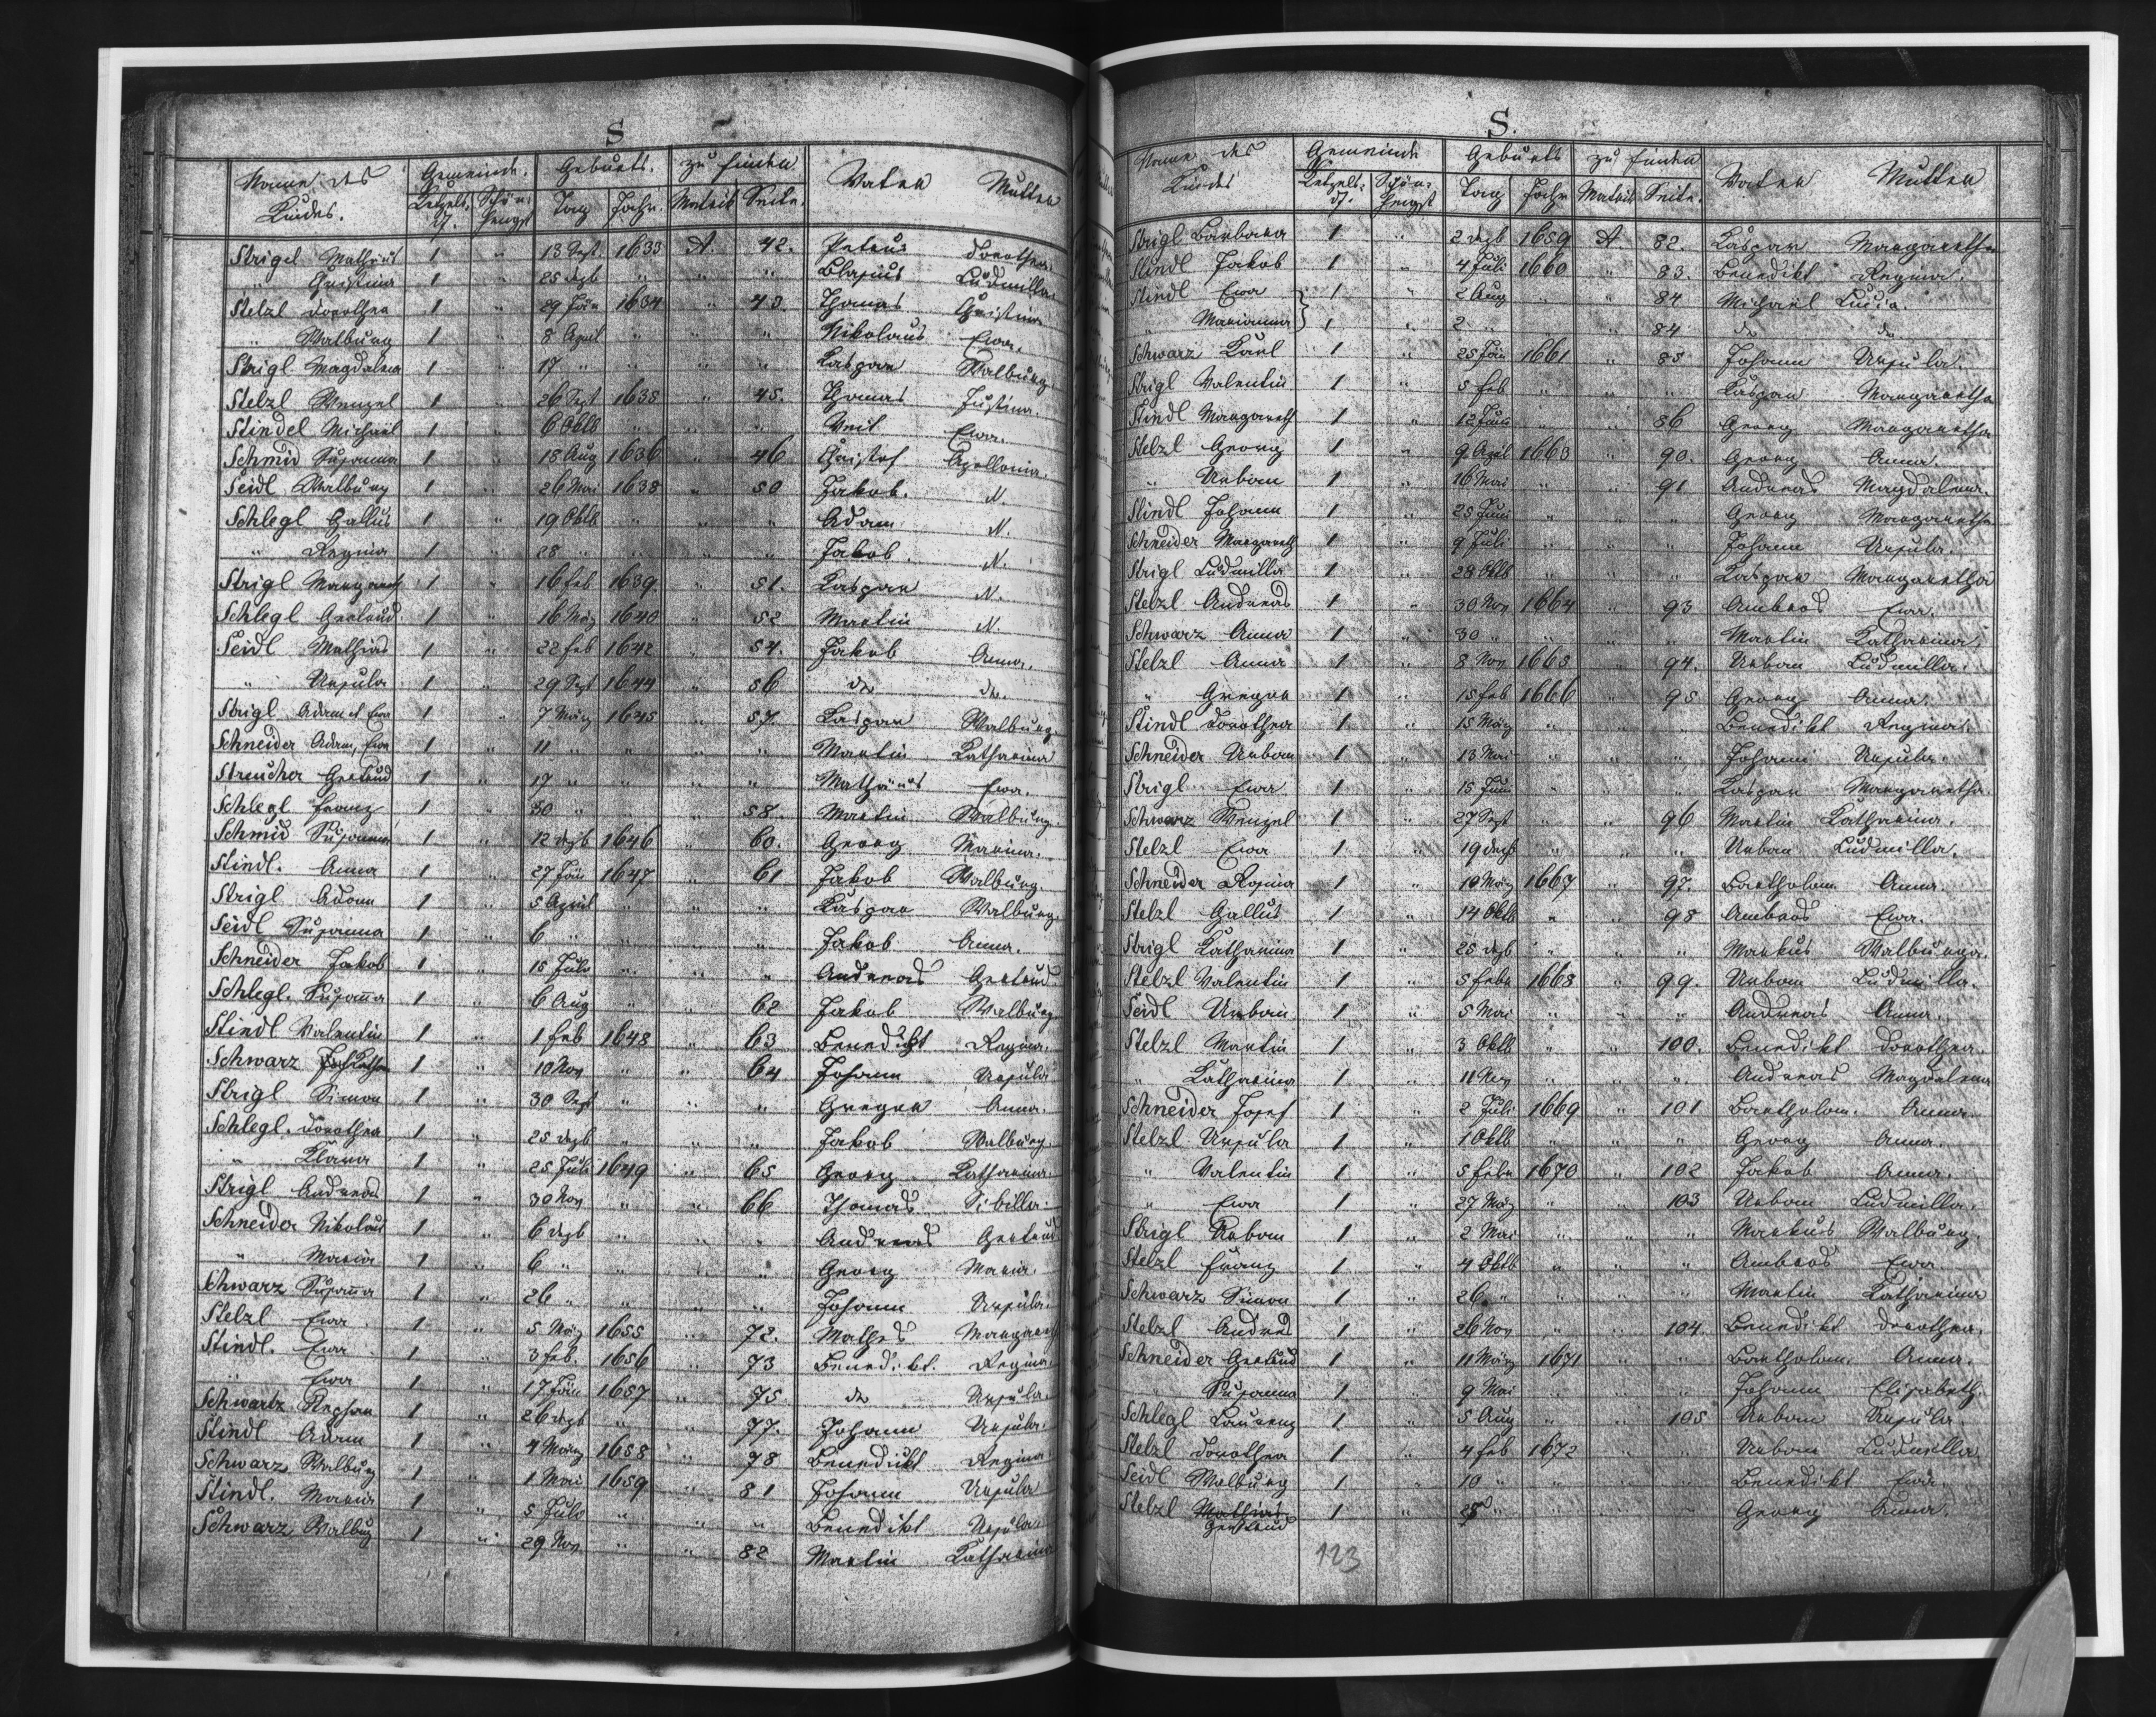 S
Name des Gemeinde. Geburts. zu finden Vater Mutter
Kindes. Ketzels: Schön: Tag Jahr. Matrik Seite.
df. hengst
Strigel Mathias 1 " 13 Sept 1633 A. 42. Petrus Dorothea
" Christina 1 " 25 dezb " " " Blasius Ludmilla
Stelzl Dorothea 1 " 29 Jän 1634 " 43. Thomas Christina
" Walburg 1 " 8 April " " " Nikolaus Ewa.
Strigl Magdalena 1 " 17 " " " " Kaspar Walburg.
Stelzl Wenzel 1 " 26 Sept 1635 " 45. Thomas Justina.
Stindel Michael 1 " 6 Oktb " " " Veit Ewa.
Schmid Susanna 1 " 18 Aug 1636 " 46 Christof Apollonia.
Seidl Walburg 1 " 26 Mai 1638 " 50 Jakob. N.
Schlegl Gallus 1 " 19 Oktb " " " Adam N.
" Regina 1 " 28 " " " " Jakob. N.
Strigl Margareth 1 " 16 feb 1639. " 51. Kaspar N.
Schlegl Gertrud. 1 " 16 März 1640 " 52 Martin N.
Seidl Mathias 1 " 22 feb 1642 " 54. Jakob Anna.
" Ursula 1 " 29 Sept 1644 " 56 do do.
Strigl Adam et Ewa 1 " 7 März 1645 " 57. Kaspar Walburg.
Schneider Adam, Ewa 1 " 11 " " " " Martin Katharina
Streucher Gertrud 1 " 17 " " " " Mathäus Ewa.
Schlegl Franz 1 " 30 " " " 58. Martin Walburg
Schmid Susanna 1 " 12 dezb 1646 " 60. Georg Marina.
Stindl. Anna 1 " 27 Jän 1647 " 61 Jakob Walburg.
Strigl Adam 1 " 5 April " " " Kaspar Walburg.
Seidl Susanna 1 " 6 " " " " Jakob Anna.
Schneider Jakob 1 " 15 Juli " " " Andreas Gertrud.
Schlegl. Susanna 1 " 6 Aug " " 62 Jakob Walburg
Stindl Valentin 1 " 1 feb 1648 " 63 Benedikt Regina.
Schwarz 1 " 10 Nov " " 64 Johann Ursula
Strigl Simon 1 " 30 Sept " " " Gregor Anna.
Schlegl. Dorothea 1 " 25 dezb " " " Jakob Walburg.
" Klara 1 " 25 Juli 1649 " 65 Georg Katharina.
Strigl Andreas 1 " 30 Nov " " 66 Thomas Sibilla.
Schneider Nikolaus 1 " 6 dezb " " " Andreas Gertrud
" Maria 1 " 6 " " " " Georg Maria.
Schwarz Susanna 1 " 26 " " " " Johann Ursula.
Stelzl Ewa 1 " 5 März 1655 " 72. Mathes Margareth
Stindl. Ewa 1 " 3 feb. 1656 " 73 Benedikt. Regina.
" Ewa 1 " 17 Jän 1657 " 75. do Ursula.
Schwartz Stephan 1 " 26 dezb " " 77. Johann Ursula.
Stindl Adam 1 " 4 März 1658 " 78 Benedikt Regina
Schwarz Walburg 1 " 1 Mai 1659 " 81 Johann Ursula
Stindl. Maria 1 " 5 Julo " " " Benedikt Ursula.
Schwarz Walburg 1 " 29 Nov " " 82 Martin Katharina
S.
Name des Gemeinde Geburts zu finden Vater Mutter
Kindes Ketzels: Schön: Tag Jahr Matrik Seite.
df. hengst
Strigl Barbara 1 " 2 dezb 1659 A 82. Kaspar Margaretha
Stindl Jakob 1 " 4 Juli 1660 " 83. Benedikt Regina.
Stindl Ewa 1 " 2 Aug " " 84 Michael Lucia.
" Marianna 1 " 2 " " " 84 do do
Schwarz Karl 1 " 25 Jän 1661 " 85 Johann Ursula.
Strigl Valentin 1 " 5 feb " " " Kaspar Margaretha
Stindl Margareth 1 " 12 Juni " " 86 Georg Margaretha
Stelzl Georg 1 " 9 April 1663 " 90. Georg Anna.
" Urban 1 " 16 Mai " " 91 Andreas Magdalena.
Stindl Johann 1 " 25 Juni " " " Georg Margaretha
Schneider Margareth 1 " 9 Juli " " " Johann Ursula.
Strigl Ludmilla 1 " 28 Oktb " " " Kaspar Margaretha
Stelzl Andreas 1 " 30 Nov 1664 " 93 Ambros Ewa.
Schwarz Anna 1 " 30 " " " " Martin Katharina.
Stelzl Anna 1 " 8 Nov 1665 " 94. Urban Ludmilla.
" Gregor 1 " 15 feb 1666 " 95 Georg Anna.
Stindl Dorothea 1 " 15 März " " " Benedikt Regina.
Schneider Urban 1 " 13 Mai " " " Johann Ursula.
Strigl Ewa 1 " 15 Juni " " " Kaspar Margaretha.
Schwarz Wenzel 1 " 27 Sept " " 96 Martin Katharina.
Stelzl Ewa 1 " 19 dezb " " " Urban Ludmilla.
Schneider Regina 1 " 10 März 1667 " 97. Bartholom. Anna.
Stelzl Gallus 1 " 14 Oktb " " 98 Ambros Ewa.
Strigl Katharina 1 " 25 dezb " " " Markus Walburga.
Stelzl Valentin 1 " 5 febr 1668 " 99. Urban Ludmilla.
Seidl Urban 1 " 5 Mai " " " Andreas Anna.
Stelzl Martin 1 " 3 Oktb " " 100. Benedikt Dorothea.
" Katharina 1 " 11 Nov " " " Andreas Magdalena
Schneider Josef 1 " 2 Juli 1669 " 101 Bartholom. Anna.
Stelzl Ursula 1 " 1 Oktb " " " Georg Anna.
" Valentin 1 " 5 febr 1670 " 102 Jakob Anna.
" Ewa 1 " 27 März " " 103 Urban Ludmilla.
Strigl Urban 1 " 2 Mai " " " Markus Walburg.
Stelzl Franz 1 " 4 Oktb " " " Ambros Ewa
Schwarz Simon 1 " 26 " " " " Martin Katharina
Stelzl Andreas 1 " 26 Nov " " 104. Benedikt Dorothea.
Schneider Gertrud 1 " 11 März 1671 " " Bartholom. Anna.
" Susanna 1 " 9 Mai " " " Johann Elisabeth.
Schlegl Laurenz 1 " 5 Aug " " 105 Urban Ursula.
Stelzl Dorothea 1 " 4 feb 1672 " " Urban Ludmilla.
Seidl Walburg 1 " 10 " " " " Benedikt Ewa.
Stelzl Mathias 1 " " " " " Georg Anna.
Gertraud
123